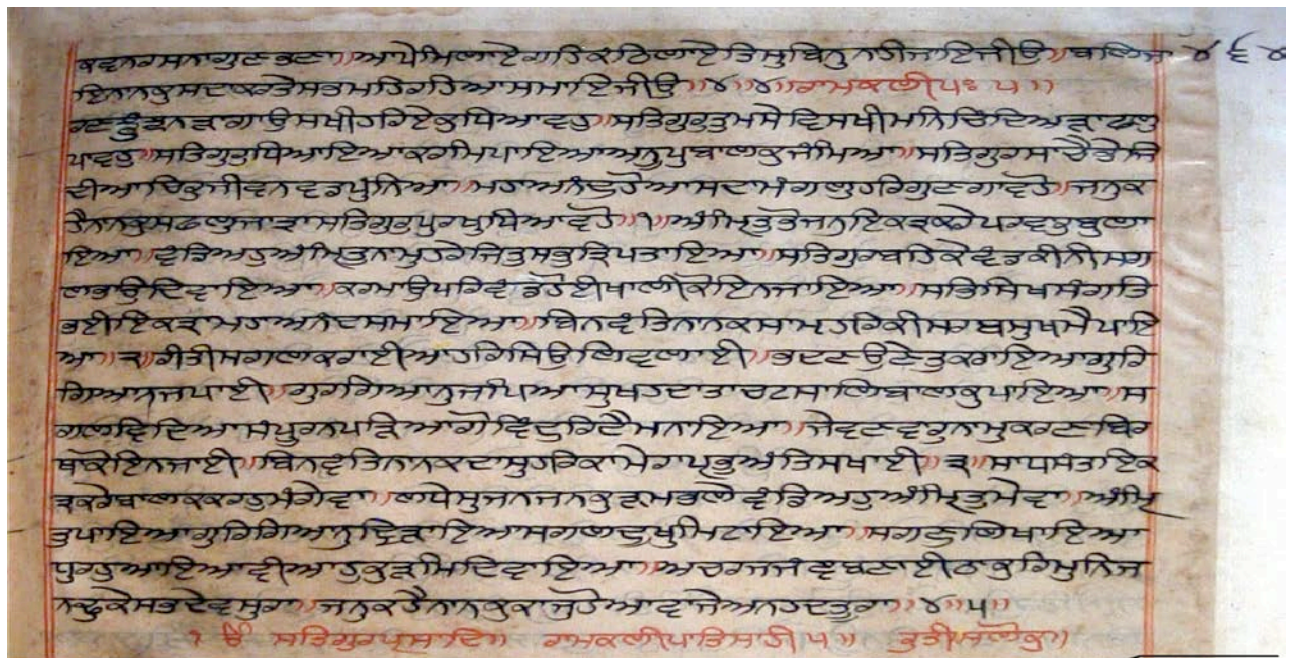 ਕਵਨਰਸਨਾਗੁਣਭਣਾ॥ਆਪੇਮਿਲਾਏਗਹਿਕੰਠਿਲਾਏਤਿਸੁਬਿਨੁਨਹੀਜਾਇਜੀਉ॥ਬਲਿਜਾ ੪੬੪
ਇਨਾਨਕੁਸਦਾਕਰਤੇਸਭਮਹਿਰਹਿਆਸਮਾਇਜੀਉ॥੪॥੪॥ਰਾਮਕਲੀਮਃ ੫॥
ਰਣਝੁੰਝਨੜਾਗਾਉਸਖੀਹਰਿਏਕੁਧਿਆਵਹੁ॥ਸਤਿਗੁਰੁਤੁਮਸੇਵਿਸਖੀਮਨਿਚਿੰਦਿਅੜਾਫਲੁ
ਪਾਵਹੁ॥ਸਤਿਗੁਰੁਧਿਆਇਆਕਰਮਿਪਾਇਆਅਨੂਪੁਬਾਲਕੁਜੰਮਿਆ॥ਸਤਿਗੁਰਸਾਚੈਭੇਜਿ
ਦੀਆਚਿਰੁਜੀਵਨਵਡਪੁੰਨਿਆ॥ਮਹਾਅਨੰਦੁਹੋਆਸਦਾਮੰਗਲੁਹਰਿਗੁਣਗਾਵਹੋ॥ਜਨੁਕ
ਹੈਨਾਨਕੁਸਫਲੁਜਾਤ੍ਰਾਸਤਿਗੁਰੁਪੁਰਖੁਧਿਆਵਹੋ॥੧॥ਅੰਮ੍ਰਿਤੁਭੋਜਨਇਕਤ੍ਰਕਰੇਪਰਵਤੁਬੁਲਾ
ਇਆ॥ਵੰਡਿਅਹੁਅੰਮ੍ਰਿਤੁਨਾਮੁਹਰੇਜਿਤੁਸਭੁਤ੍ਰਿਪਤਾਇਆ॥ਸਤਿਗੁਰਬਹਿਕੇਵੰਡਕੀਨੀਸਗ
ਲਭਉਦਿਵਾਇਆ॥ਕਰਮਾਉਪਰਿਵੰਡਹੋਈਖਾਲੀਕੋਇਨਜਾਇਆ॥ਸਭਿਸਿਖਸੰਗਤਿ
ਭਈਇਕਤ੍ਰਮਹਾਅਨੰਦਸਮਾਇਆ॥ਬਿਨਵੰਤਿਨਾਨਕਸਾਮਹਰਿਕੀਸਰਬਸੁਖਮੈਪਾਇ
ਆ॥੨॥ਰੀਤੀਸਗਲਾਕਰਾਈਆਹਰਿਸਿਉਲਿਵਲਾਈ॥ਭਦਣਉਣੇਤੁਕਰਾਇਆਗੁਰਿ
ਗਿਆਨਜਪਾਈ॥ਗੁਰਗਿਆਨੁਜਪਿਆਸੁਖਹਦਾਤਾਚਟਸਾਲਿਬਾਲਕੁਪਾਇਆ॥ਸ
ਗਲਵਿਦਿਆਸੰਪੂਰਨਪੜਿਆਗੋਵਿੰਦੁਰਿਦੈਮਨਾਇਆ॥ਜੇਵਣਵਰੁਨਾਮੁਕਰਣਬਿਰ
ਥਕੋਇਨਜਾਈ॥ਬਿਨਵੰਤਿਨਾਨਕਦਾਸੁਹਰਿਕਾਮੇਰਾਪ੍ਰਭੁਅੰਤਿਸਖਾਈ॥੩॥ਸਾਧਸੰਤਇਕ
ਤ੍ਰਕਰੇਬਾਲਕਕਰਹੁਮੰਗੇਵਾ॥ਲਧੇਸੁਜਨਜਨਕੁੜਮਭਲੇਵੰਡਿਅਹੁਅੰਮ੍ਰਿਤੁਮੇਵਾ॥ਅੰਮ੍ਰਿ
ਤੁਪਾਇਆਗੁਰਿਗਿਆਨੁਦ੍ਰਿੜਾਇਆਸਗਲਦੁਖੁਮਿਟਾਇਆ॥ਸਗਨੁਲਿਖਾਇਆ
ਧੁਰਹੁਆਇਆਵੀਆਹੁਕੁੜਮਿਦਿਵਾਇਆ॥ਅਚਰਜਜੰਞਬਣਾਈਠਾਕੁਰਿਮੁਨਿਜ
ਨਢੁਕੇਸਭਦੇਵਸੁਰਾ॥ਜਨੁਕਹੈਨਾਨਕੁਕਾਜੁਹੋਆਵਾਜੇਅਨਹਦਤੂਰਾ॥੪॥੫॥
੧ ੴ ਸਤਿਗੁਰਪ੍ਰਸਾਦਿ॥ ਰਾਮਕਲੀਪਾਤਿਸਾਹੀ ੫॥ ਰੁਤੀਸਲੋਕੁ॥